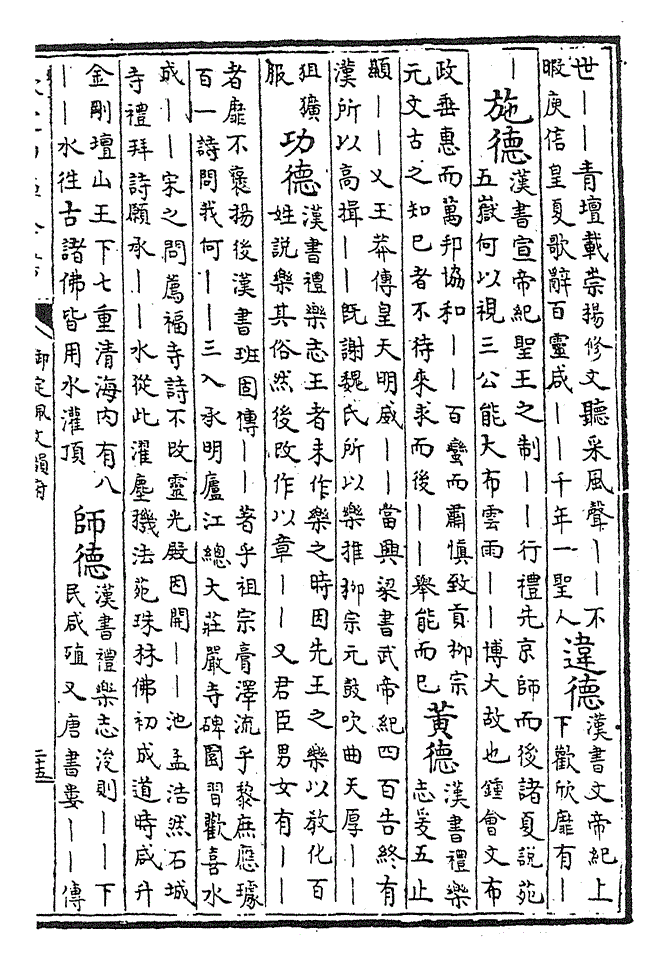 世｜｜青壇載崇揚修文聽采風聲｜｜不
暇庾信皇夏歌辭百靈咸｜｜千年一聖人
違德
漢書文帝紀上
下歡欣靡有｜
｜
施德
漢書宣帝紀聖王之制｜｜行禮先京師而後諸夏說苑
五嶽何以視三公能大布雲雨｜｜博大故也鍾會文布
政垂惠而萬邦協和｜｜百蠻而肅慎致貢柳宗
元文古之知已者不待來求而後｜｜舉能而已
黃德
漢書禮樂
志爰五止
顯｜｜又王莽傳皇天明威｜｜當興梁書武帝紀四百告終有
漢所以高揖｜｜既謝魏氏所以樂推柳宗元鼓吹曲天厚｜｜
狙獷
服
功德
漢書禮樂志王者未作樂之時因先王之樂以教化百
姓說樂其俗然後改作以章｜｜又君臣男女有｜｜
者靡不褒揚後漢書班固傳｜｜著乎祖宗膏澤流乎黎庶應璩
百一詩問我何｜｜三入承明廬江總大莊嚴寺碑園習歡喜水
成｜｜宋之問薦福寺詩不改靈光殿因開｜｜池孟浩然石城
寺禮拜詩願承｜｜水從此濯塵機法苑珠林佛初成道時咸升
金剛壇山王下七重清海內有八
｜｜水往古諸佛皆用水灌頂
師德
漢書禮樂志浚則｜｜下
民咸殖又唐書婁｜｜傳
御定佩文韻府
二十五